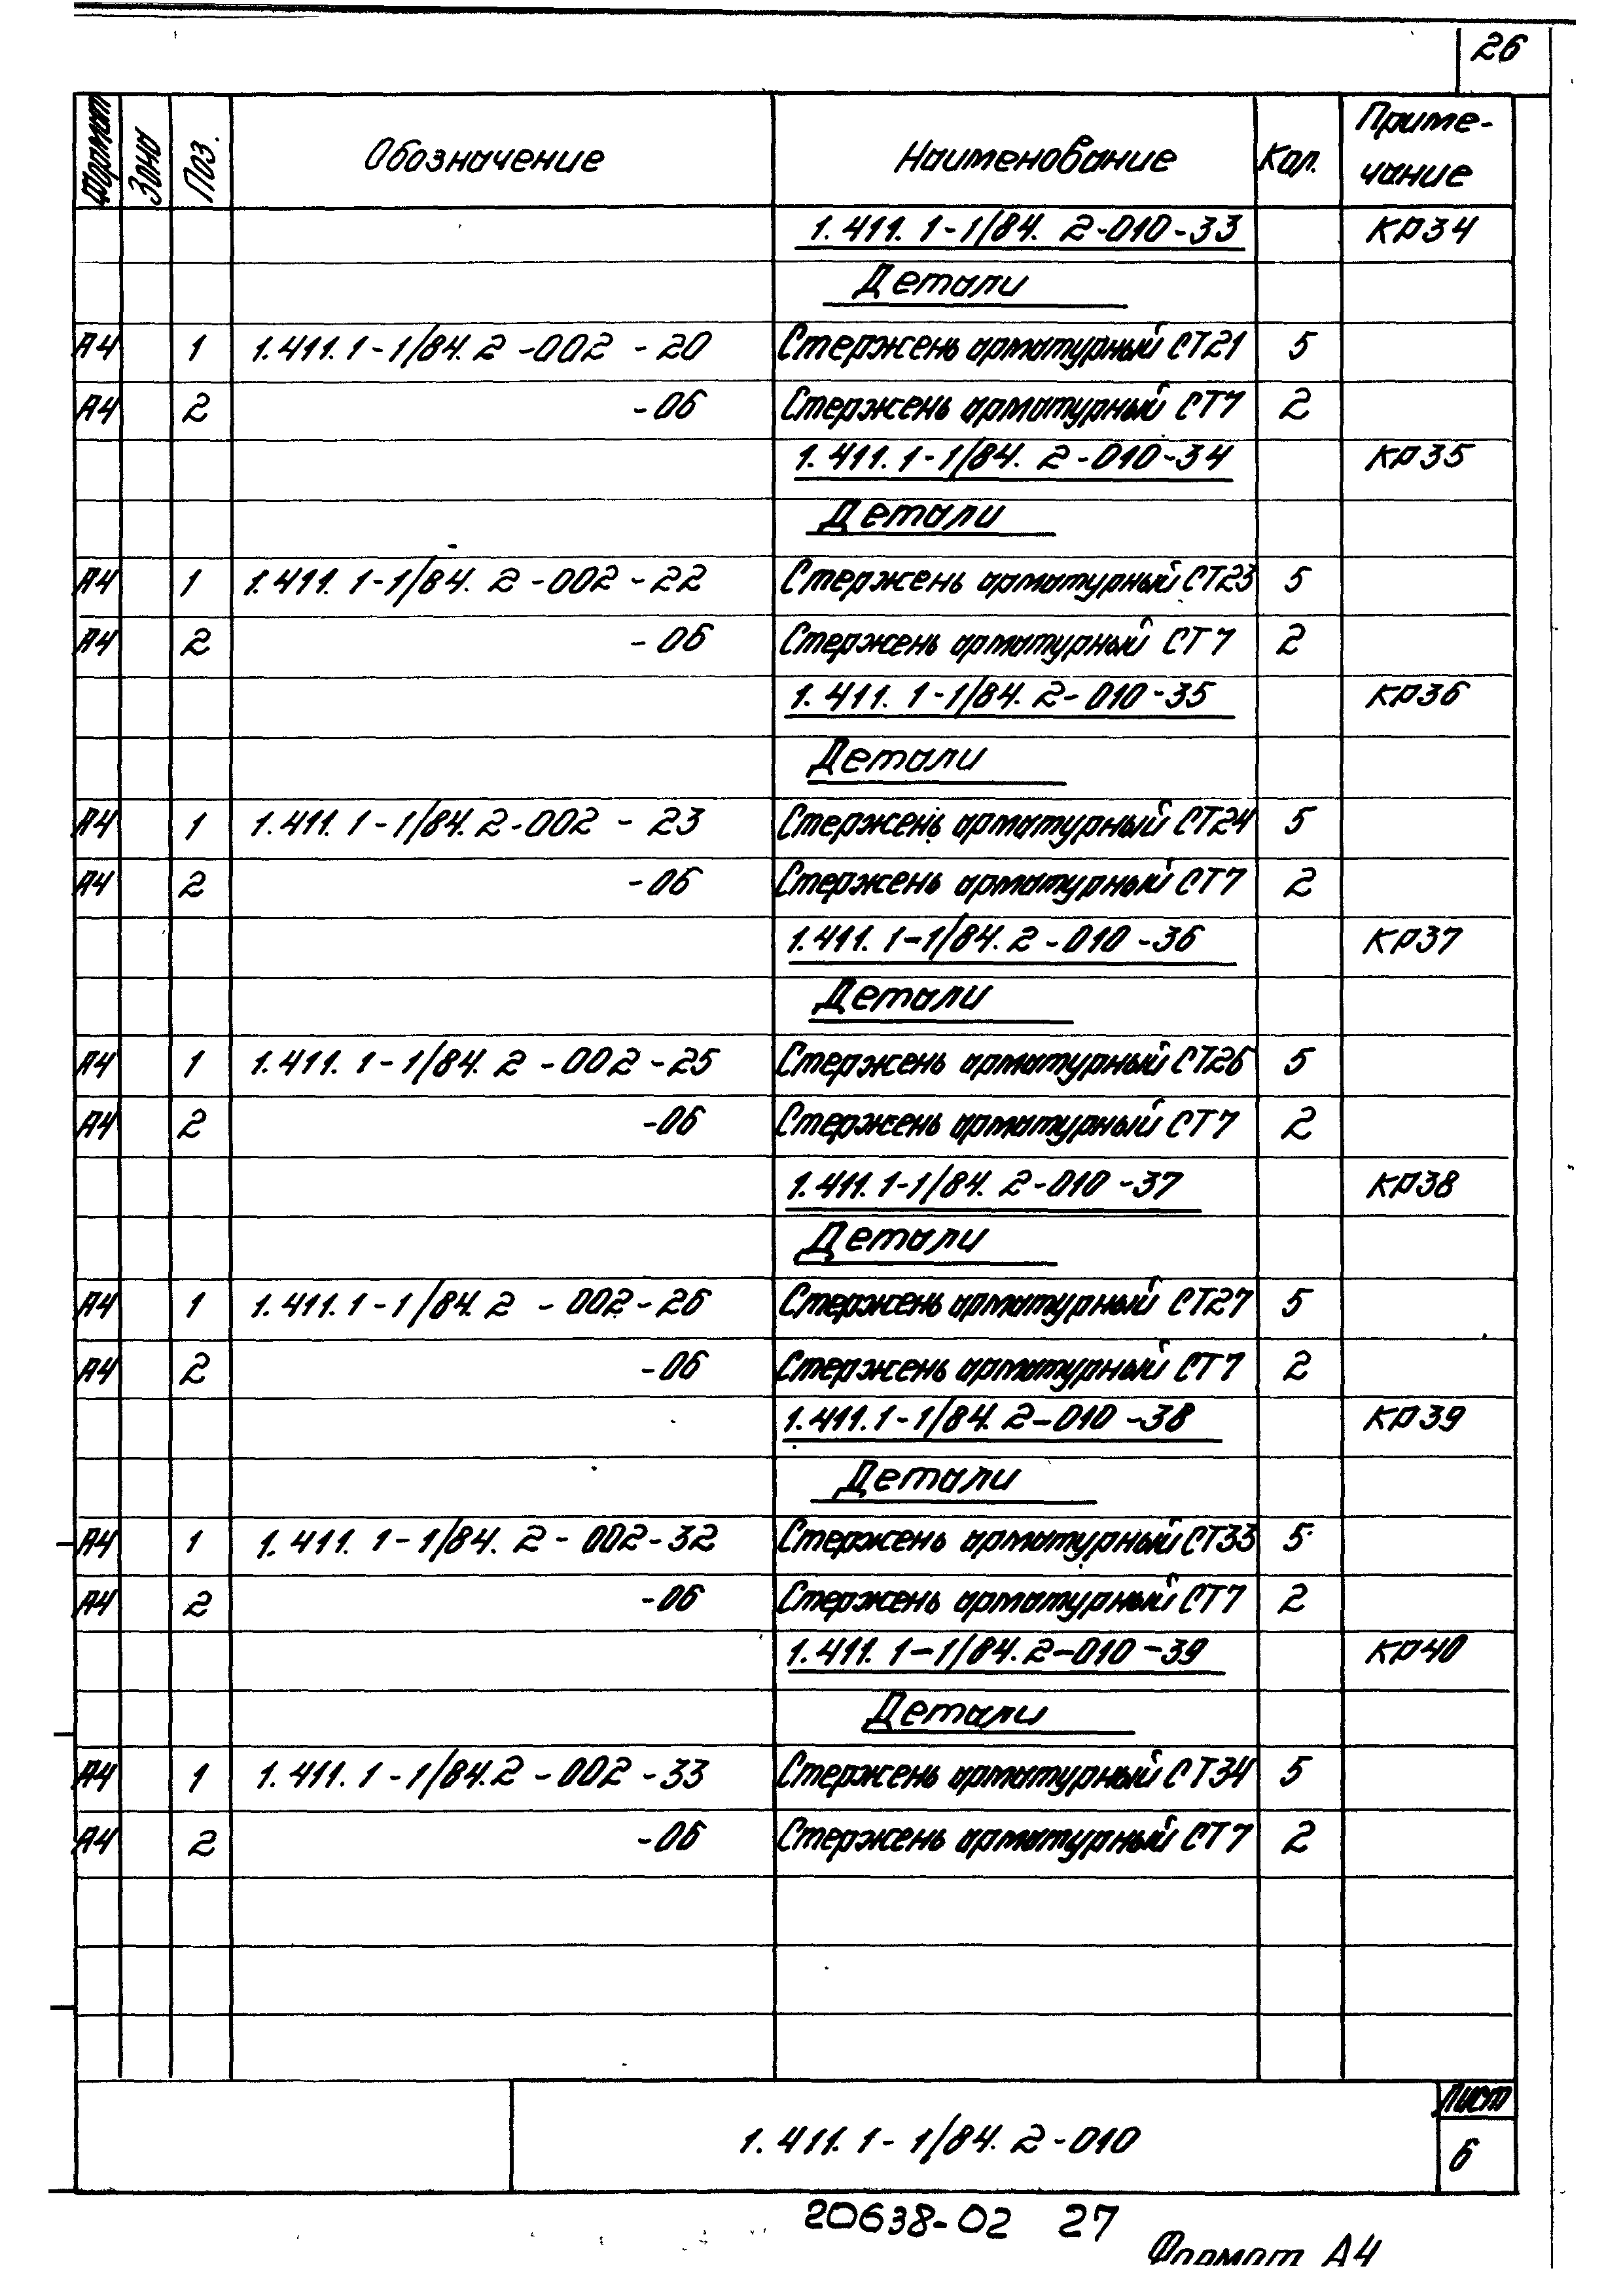 26
Формат Зона Поз. Обозначение Наименование Кол. Приме-
чание
1.411.1-1/84.2-010-33 КР34
Детали
А4 1 1.411.1-1/84.2-002-20 Стержень арматурный СТ21 5
А4 2 -06 Стержень арматурный СТ7 2
1.411.1-1/84.2-010-34 КР35
Детали
А4 1 1.411.1-1/84.2-002-22 Стержень арматурный СТ23 5
А4 2 -06 Стержень арматурный СТ7 2
1.411.1-1/84.2-010-35 КР36
Детали
А4 1 1.411.1-1/84.2-002-23 Стержень арматурный СТ24 5
А4 2 -06 Стержень арматурный СТ7 2
1.411.1-1/84.2-010-36 КР37
Детали
А4 1 1.411.1-1/84.2-002-25 Стержень арматурный СТ26 5
А4 2 -06 Стержень арматурный СТ7 2
1.411.1-1/84.2-010-37 КР38
Детали
А4 1 1.411.1-1/84.2-002-26 Стержень арматурный СТ27 5
А4 2 -06 Стержень арматурный СТ7 2
1.411.1-1/84.2-010-38 КР39
Детали
А4 1 1.411.1-1/84.2-002-32 Стержень арматурный СТ33 5
А4 2 -06 Стержень арматурный СТ7 2
1.411.1-1/84.2-010-39 КР40
Детали
А4 1 1.411.1-1/84.2-002-33 Стержень арматурный СТ34 5
А4 2 -06 Стержень арматурный СТ7 2
1.411.1-1/84.2-010
Лист
6
20638-02 27
Формат А4